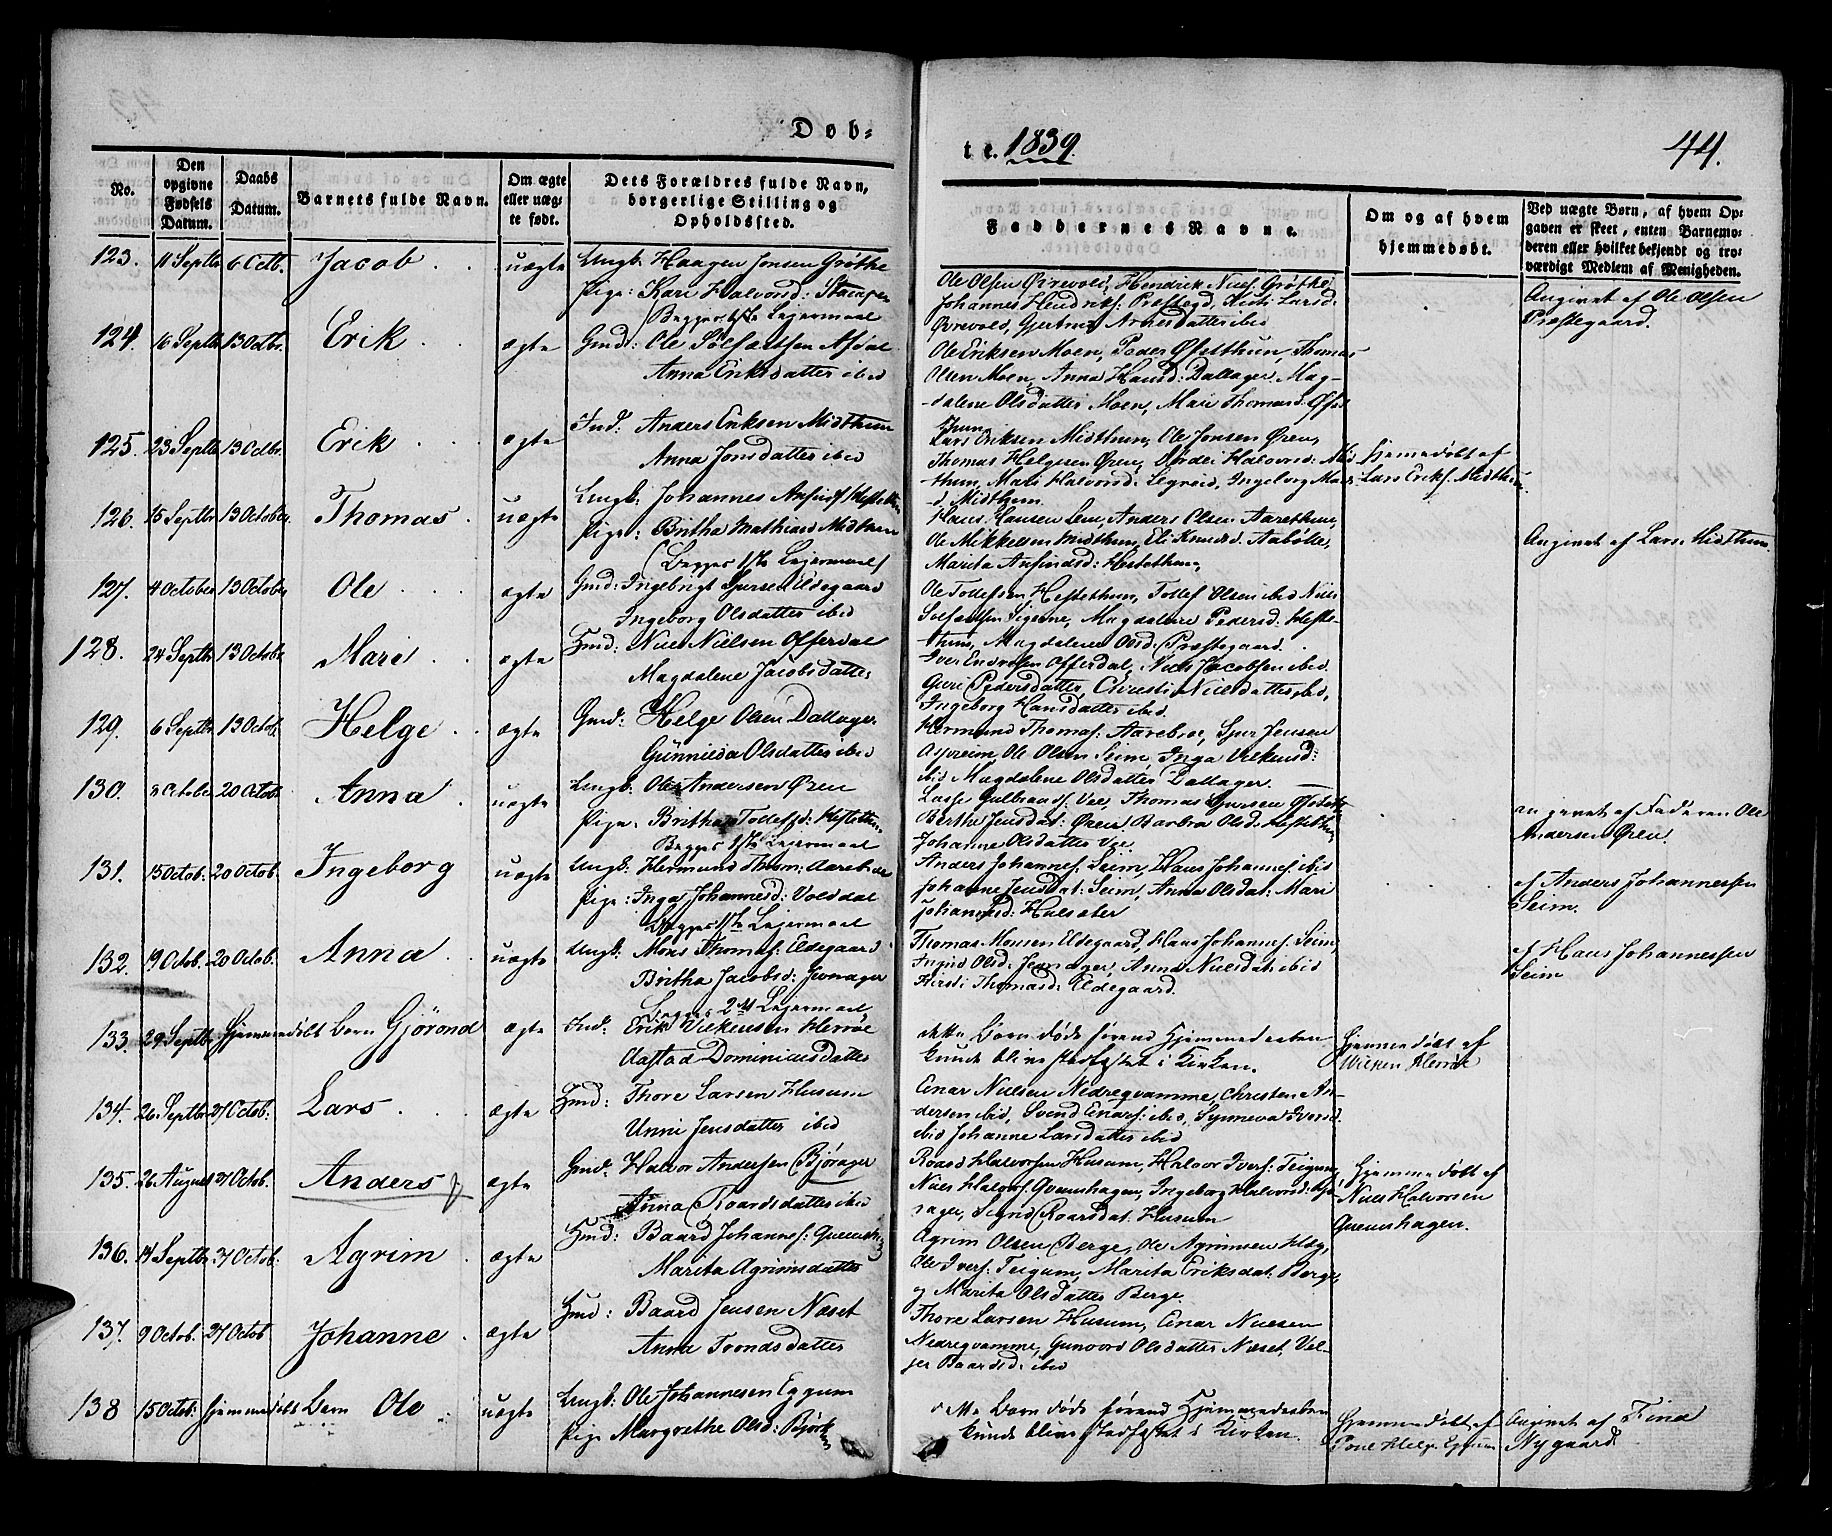 Døb-
te. 1839.
44.
No.
Den opgivne Fødsels Datum.
Daabs Datum.
Barnets fulde Navn.
Om ægte eller uægte født.
Dets Forældres fulde Navn, borgerlige Stilling og Opholdssted.
Faddernes Navne.
Om og af hvem hjemmedøbt.
Ved uægte Børn, af hvem Opgaven er skeet, enten Barnemoderen eller hvilket bekjendt og troværdigt Medlem af Menigheden.
123. 11 Septbr 6 Octb. Jacob uægte Ungk. Haagen Jonsen Grøthe
Pige: Kari Halvorsd:
Begges 1ste Lejermaal
Ole Olsen Øvrevold, Hendrik Niels: Grøthe,
Johannes Hendriks: Præstegd, Kisti Larsd:
Øvrevold, Gertrud Arnesdatter ibid
Angivet af Ole Olsen
Præstegaard.
124. 16 Septbr 13 Octbr. Erik ægte Gmd: Ole Sølfæstsen Afdal
Anna Eriksdatter ibid
Ole Eriksen Moen, Peder Ofstthun, Thomas
Olsen Moen, Anna Hansd: Dallager, Mag-
dalene Olsdatter Moen, Mari Thomasd: Ofst-
thun
125. 23 Septbr 13 Octbr. Erik ægte Ind: Anders Eriksen Midthun
Anna Jonsdatter ibid
Lars Eriksen Midthun, Ole Jonsen Øren,
Thomas Helgesen Øren, Dordei Halvorsd: Mid-
thun, Mari Halvorsd: Legreid, Ingeborg Mons-
d: Midthun.
Hjemmedøbt af
Lars Eriks. Midthun.
126. 15 Septbr 13 October Thomas uægte Ungk: Johannes Ansinds: Hestethun
Pige: Britha Mathiasd Midthun
(Begges 1ste Lejermaal)
Hans Hansen Lem, Anders Olsen Aarethun,
Ole Mikkelsen Midthun, Eli Knudsd. Aabølle,
Marita Ansindsd: Hestethun,
Angivet af Lars Midthun.
127. 4 October 13 October Ole ægte Gmd: Ingebrigt Sjursen Eldegaard
Ingeborg Olsdatter ibid
Ole Tollefsen Hestethun, Tollef Olsen ibid Niels
Sølfæstsen Sigerne, Magdalene Pedersd: Heste-
thun, Magdalene Olsd: Præstegaard.
128. 24 Septbr 13 Octobr Mari ægte Hmd: Niels Nielsen Offerdal
Magdalene Jacobsdatter
Iver Endresen Offerdal, Niels Jacobsen ibid
Guri Pedersdatter, Christi Nielsdatter ibid,
Ingeborg Hansdatter ibid.
129. 6 Septbr 13 Octob: Helge ægte Gmd: Helge Olsen Dallager
Gunnilda Olsdatter ibid
Hermund Thomas: Aarebroe, Sjur Jensen
Asperheim, Ole Olsen Seim, Inga Vilkensd:
ibid Magdalene Olsdatter Dallager.
130. 8 Octobr 20 Octob: Anna uægte Ungk. Ole Andersen Øren
Pige: Britha Tollefsd: Hestethun
Begges 1ste Lejermaal
Lasse Gulbrands: Vee, Thomas Sjursen Ofstethun
Berthe Jensdat: Øren, Barbra Olsd: Hestethun,
Johanne Olsdatter Vee.
angivet af Faderen Ole
Andersen Øren.
131. 15 Octob. 20 Octob. Ingeborg uægte Ungk. Hermund Thom: Aarebroe
Pige: Inga Johannesd: Volddal
Begges 1ste Lejermaal
Anders Johannes: Seim, Hans Johannes: ibid
Johanne Jensdat: Seim, Anna Olsdat: Mari
Johannesd: Hulsæter
af Anders Johannessen
Seim.
132. 19 Octob. 20 Octob. Anna uægte Ungk: Mons Thomas: Eldegaard
Britha Jacobsd:
Begges 2det Lejermaal
Thomas Monsen Eldegaard, Hans Johannes: Seim,
Ingrid Olsd. Anna Nielsdat: ibid
Kirsti Thomasd: Eldegaard.
af Hans Johannessen
Seim
133. 29 Septbr Hjemmedøbt Barn Gjørond ægte Ind: Erik Vilkensen Herrøe
Aastad Dominicusdatter
dette Barn døde førend Hjemmedaaben
kunde blive stadfæstet i Kirken.
Hjemmedøbt af
Wilken Herrøe
134. 26 Septbr 27 Octob. Lars ægte Hmd: Thore Larsen Husum
Unni Jensdatter ibid
Einar Nielsen Nedreqvamme, Christen An-
dersen ibid, Svend Einars: ibid, Synneva Iversd:
ibid Johanne Larsdatter ibid
135. 26 August 27 Octob. Anders ægte Gmd: Halvor Andersen Bjørager
Anna Roardsdatter ibid
Roard Halvorsen Husum, Halvor Ivers: Teigum,
Niels Halvors: Qvemshagen, Ingeborg Halvorsd: Bjø-
rager, Sigrid Roarsdat: Husum
Hjemmedøbt af
Niels Halvorsen
Quemshagen.
136. 14 Septbr 27 Octob. Agrim ægte Hmd: Baard Johannes:
Marita Agrimsdatter
Agrim Olsen Berge, Ole Agrimsen Hæg,
Ole Ivers: Teigum, Marita Eriksdat: Berge,
og Marita Olsdatter Berge.
137. 9 Octob. 27 Octob Johanne ægte Hmd: Baard Jensen Næset
Anna Trondsdatter
Thore Larsen Husum, Einar Nielsen
Nedreqvamme, Gunvord Olsdatter Næset, Vel-
jer Baardsd: ibid
138 15 Octob: hjemmedøbt Barn Ole uægte Ungk: Ole Johannesen Eggum
Pige Margrethe Olsd: Bjørk
dette Barn døde førend Hjemmedaaben
kunde blive stadfæstet i Kirken.
Hjemmedøbt af
Poul Helge: Eggum
Angivet af Fina
Nygaard